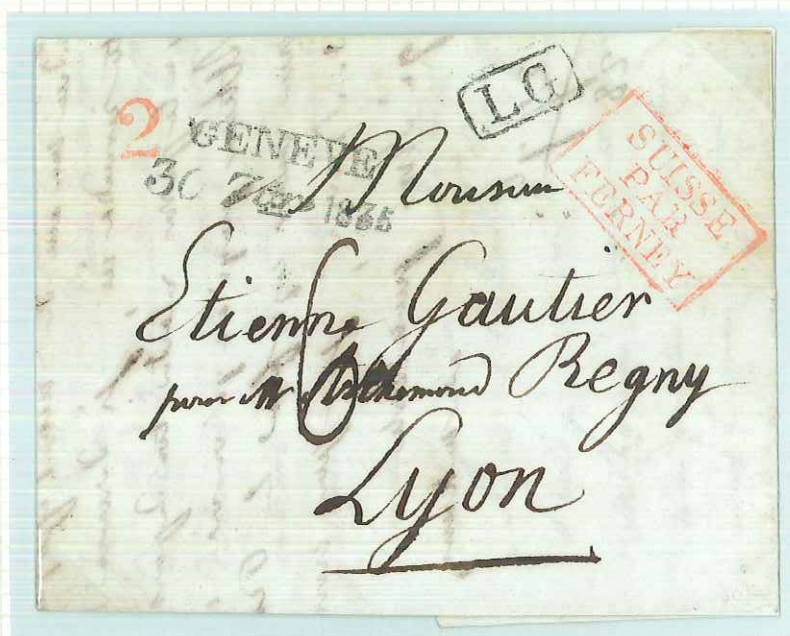 2
GENEVE
30 7bre 1835
LG
SUISSE
PAR
FERNEY
Monsieur
Etienne Gautier
pour Mr Regny
Lyon